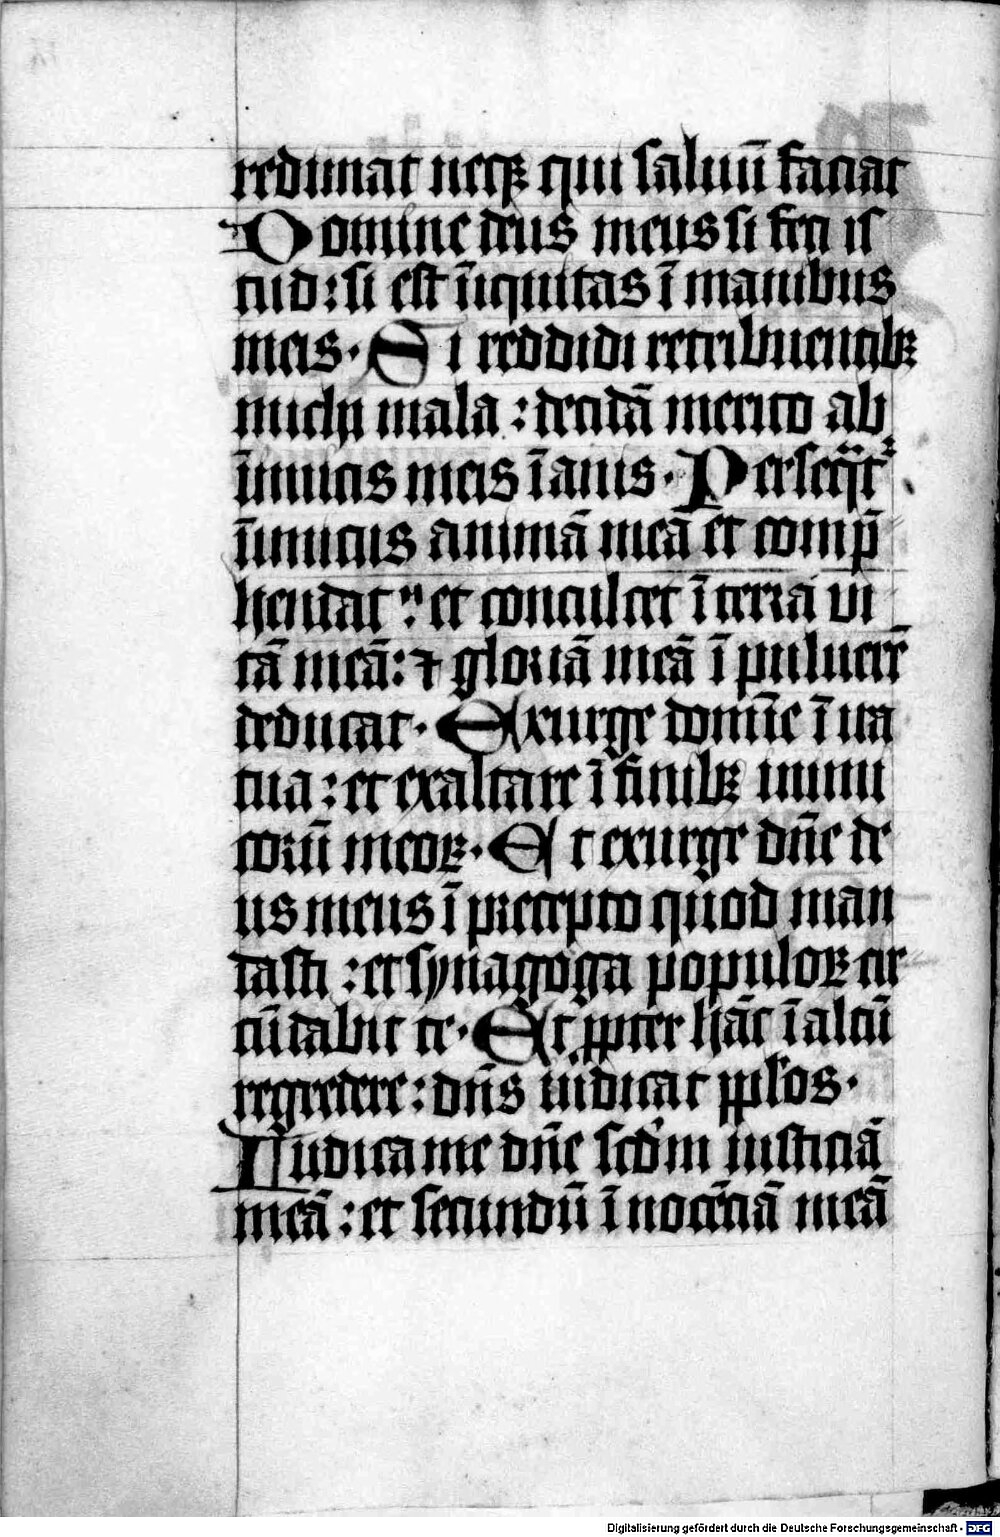 redimat neqꝫ qui saluū faciat
Domine deus meus si feci is
tud : si est īiquitas ī manibus
meis. Si reddidi retribuentibꝫ
michi mala : decidā merito ab
īimicis meis īanis. Perseqͣt᷑
īimicus animā meā et comp̄
hendat : et conculcet ī terra vi
tā meā : ⁊ gloriā meā ī puluerē
deducat. Exurge domīe ī ira
tua : et exaltare ī finibꝫ inimi
corū meoꝝ. Et exurge dn̄e de
us meus ī precepto quod man
dasti : et synagoga populoꝝ cir
cūdabit te. Et ꝓpter hāc ī altū
regredere : dn̄s iudicat ppl'os.
Iudica me dn̄e scd'm iusticiā
meā : et secundū īnocēciā meā
Digitalisierung gefördert durch die Deutsche Forschungsgemeinschaft - DFG